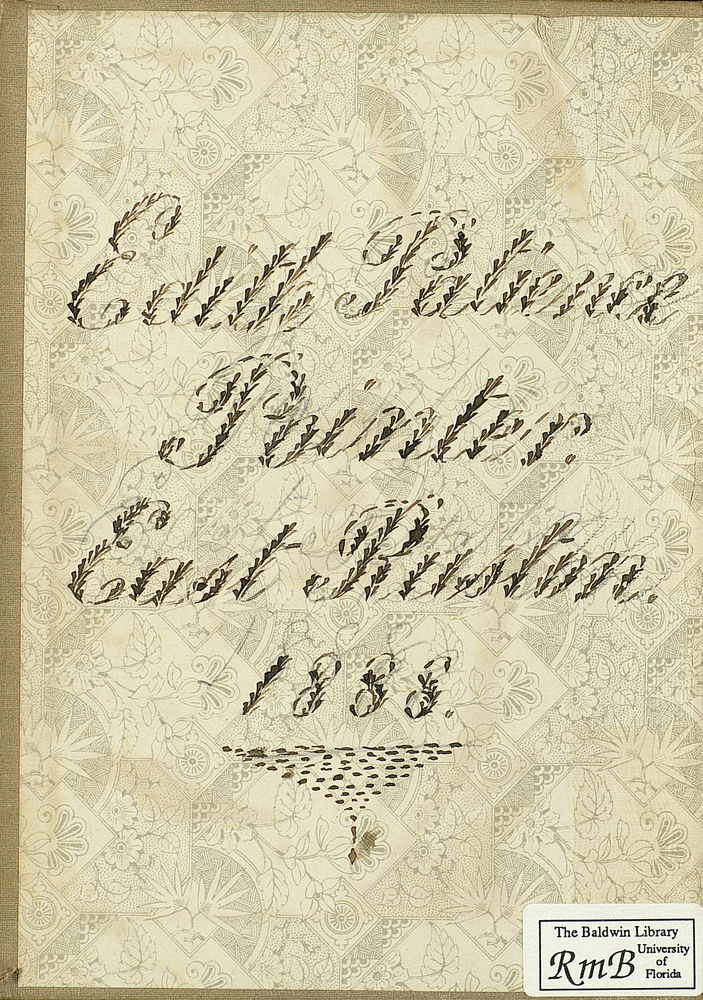 Edith Patience
Painter.
East Ruston.
1888.
The Baldwin Library
RmB
University
of
Florida